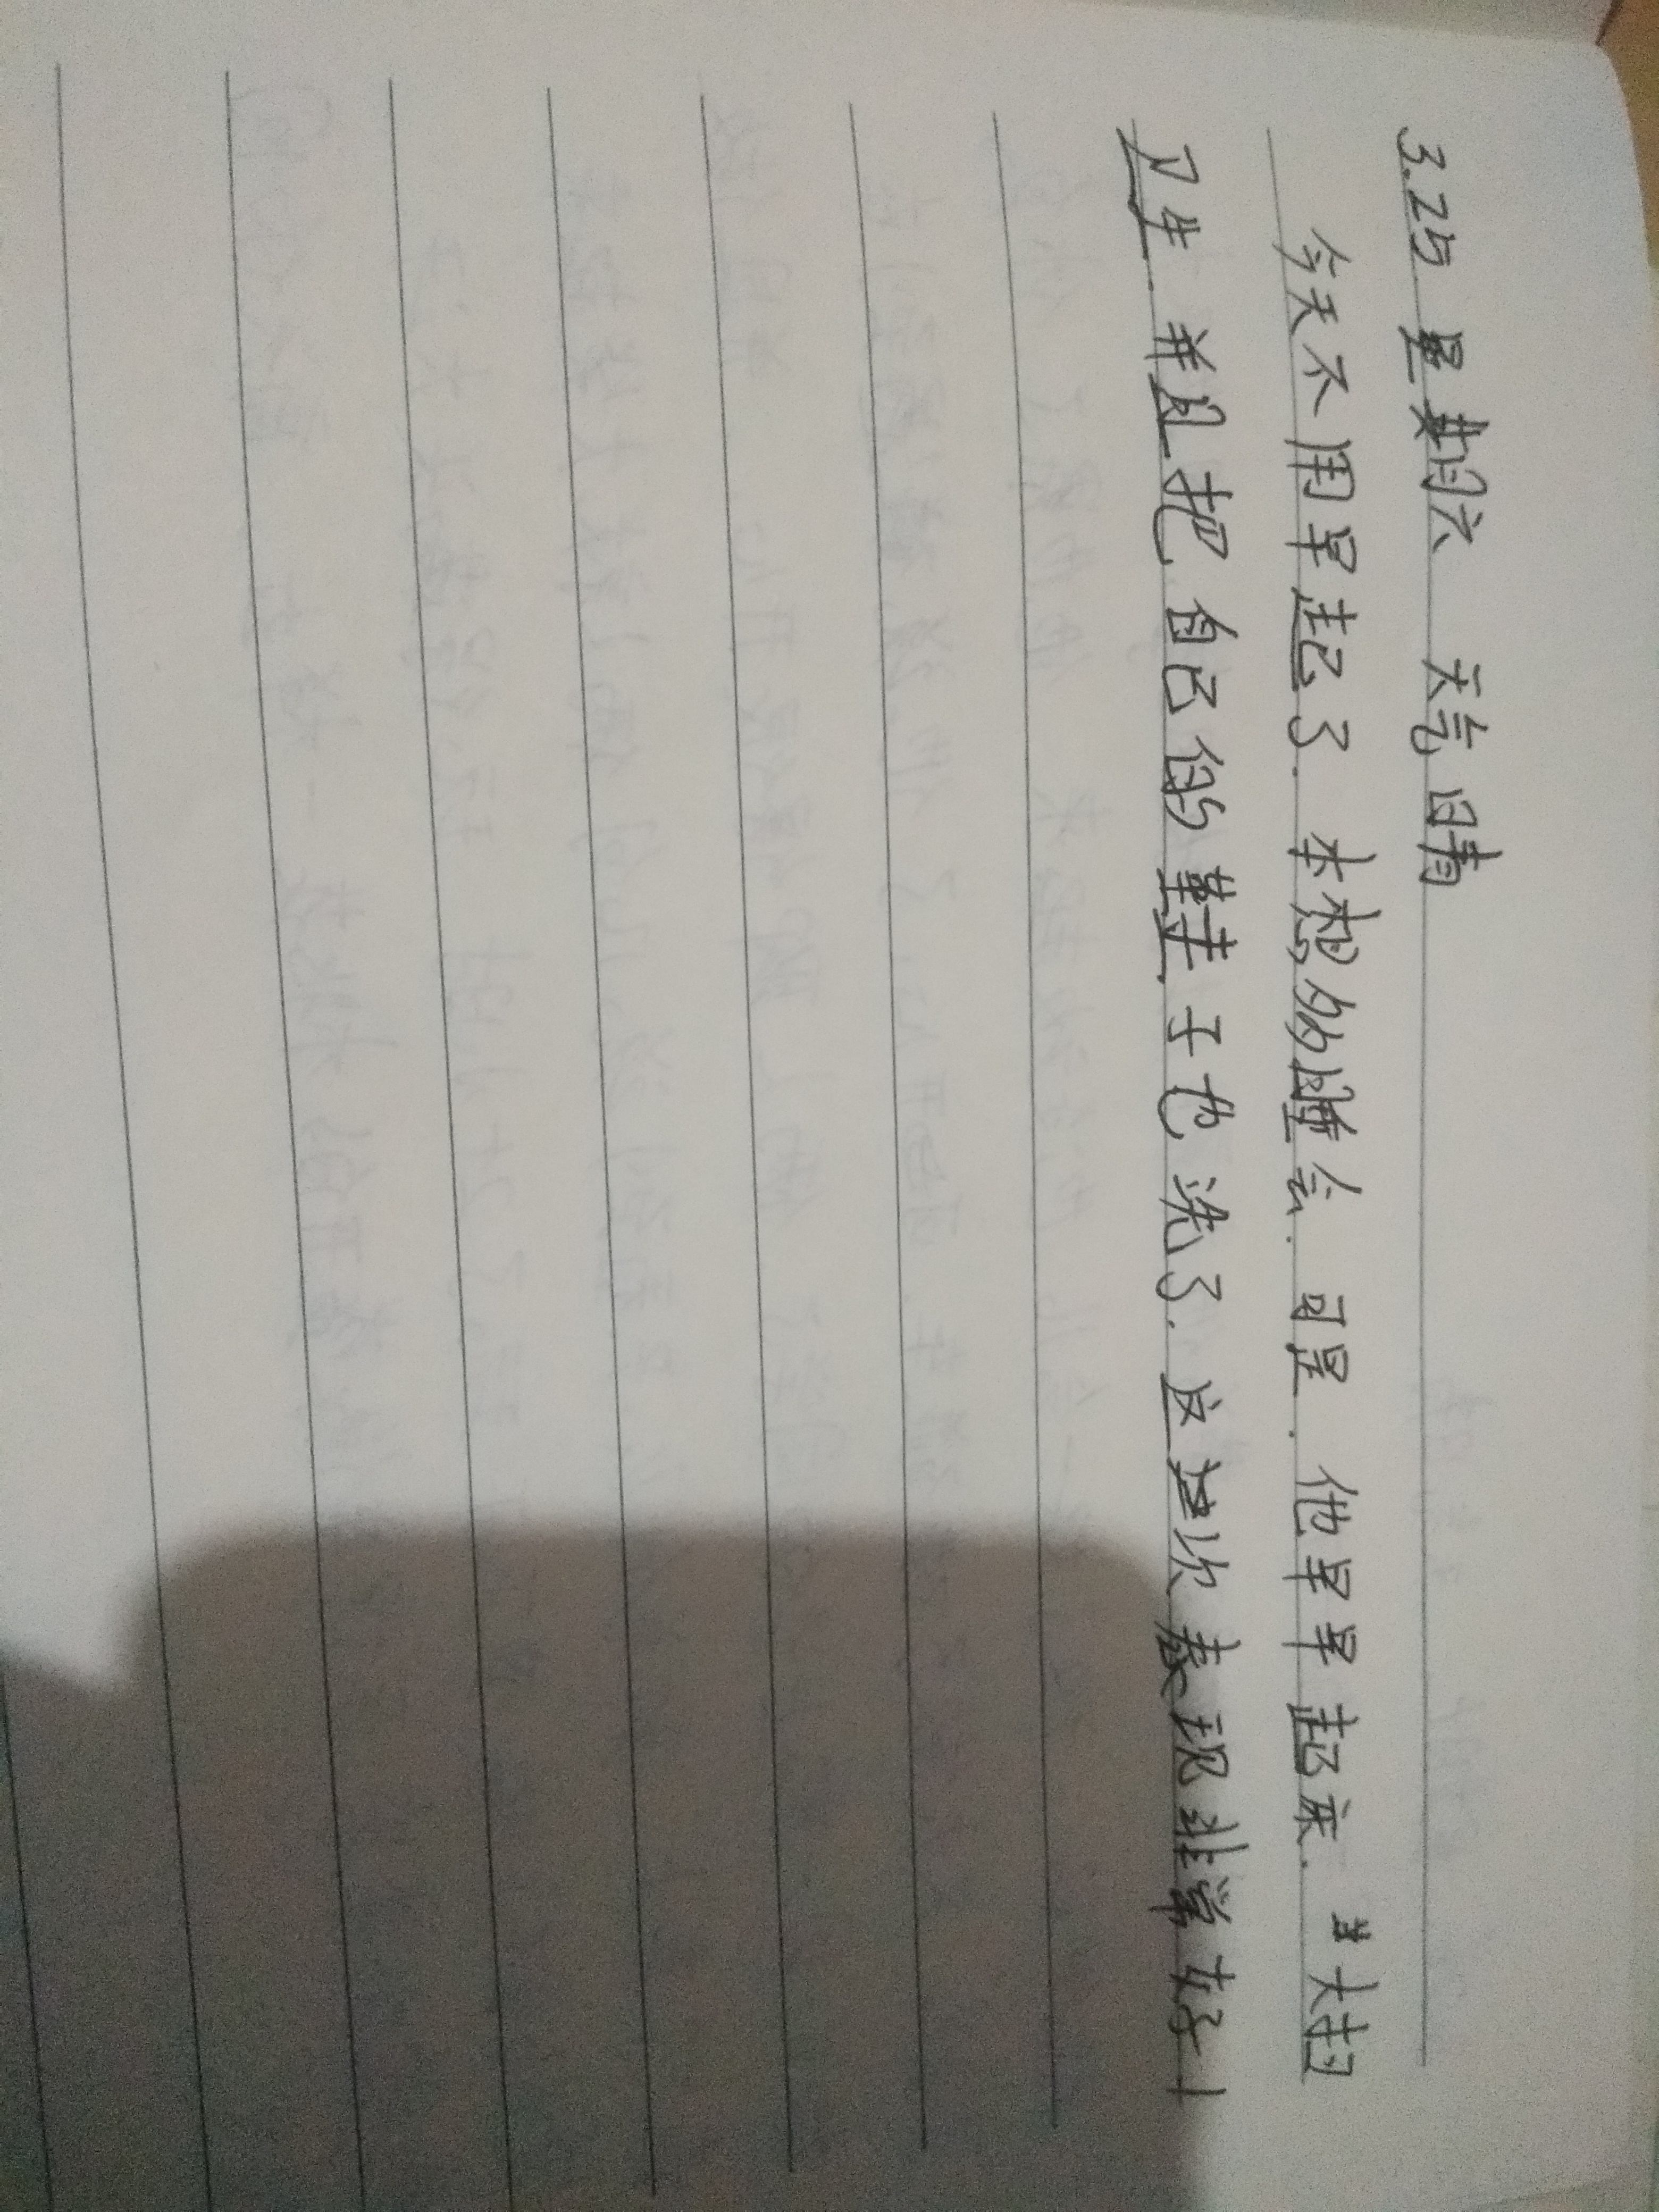 3.25 星期六 天气晴
今天不用早起了. 本想多睡会. 可是. 他早早起床. 大扫
卫生. 并且把自己的鞋子也洗了. 这次表现非常好!